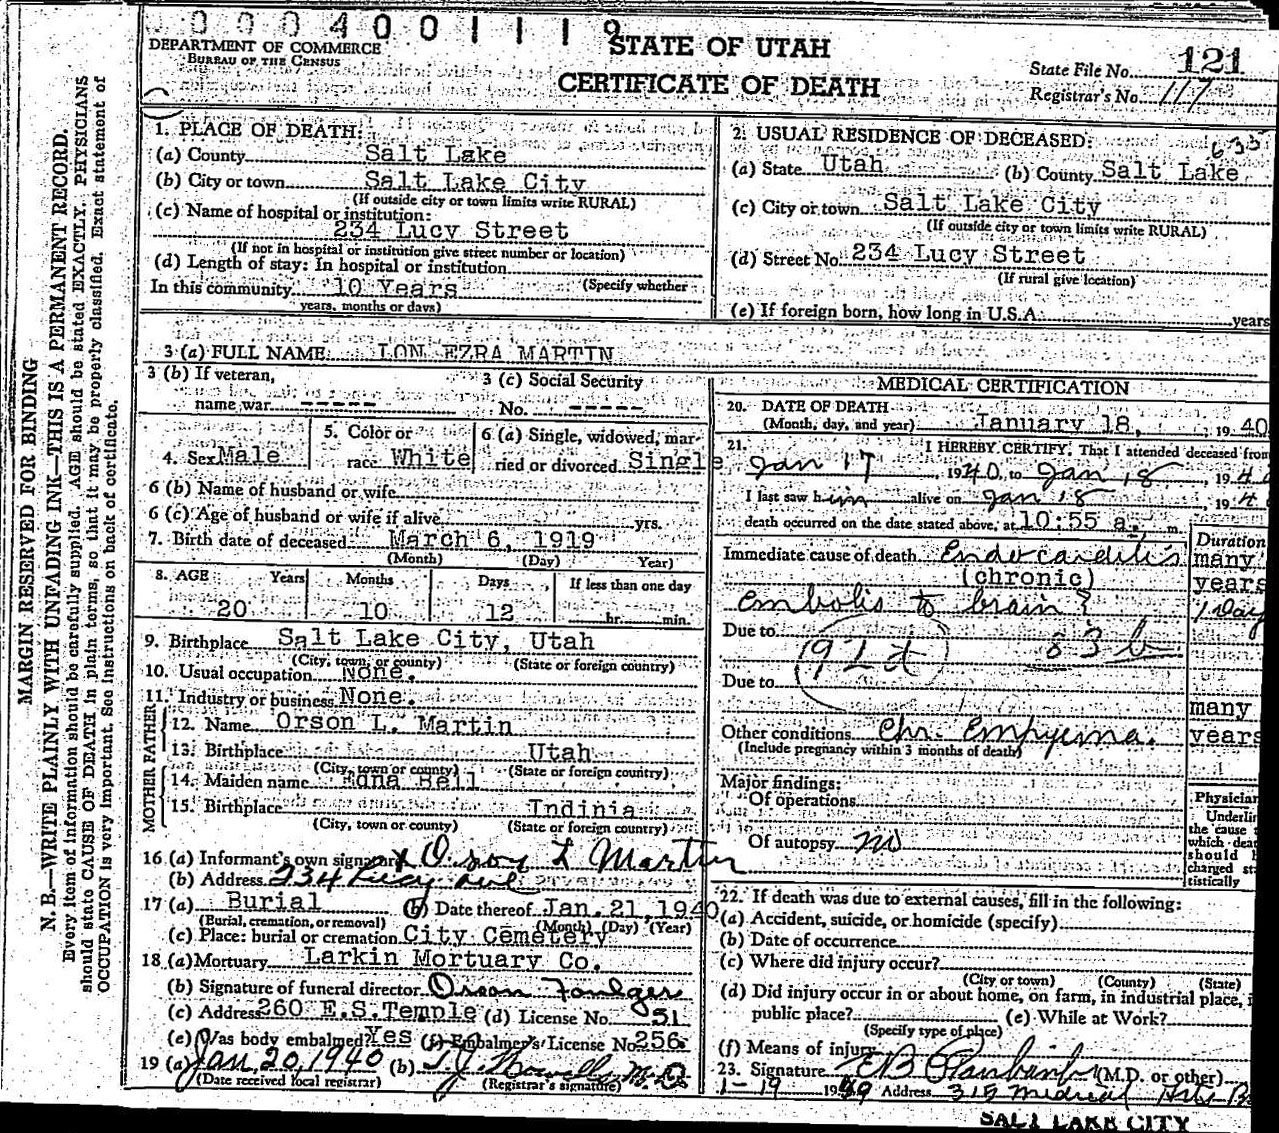 0 0 0 4 0 0 1 1 1 9
STATE OF UTAH
CERTIFICATE OF DEATH
DEPARTMENT OF COMMERCE
BUREAU OF THE CENSUS
State File No. 121
Registrar's No. 117
MARGIN RESERVED FOR BINDING
N. B.—WRITE PLAINLY WITH UNFADING INK—THIS IS A PERMANENT RECORD.
Every item of information should be carefully supplied. AGE should be stated EXACTLY. PHYSICIANS
should state CAUSE OF DEATH in plain terms, so that it may be properly classified. Exact statement of
OCCUPATION is very important. See instructions on back of certificate.
1. PLACE OF DEATH:
(a) County Salt Lake
(b) City or town Salt Lake City
(If outside city or town limits write RURAL)
(c) Name of hospital or institution:
234 Lucy Street
(If not in hospital or institution give street number or location)
(d) Length of stay: In hospital or institution
(Specify whether
In this community 10 Years
years, months or days)
2. USUAL RESIDENCE OF DECEASED:
635
(a) State Utah (b) County Salt Lake
(c) City or town Salt Lake City
(If outside city or town limits write RURAL)
(d) Street No. 234 Lucy Street
(If rural give location)
(e) If foreign born, how long in U.S.A. years
3 (a) FULL NAME LON EZRA MARTIN
3 (b) If veteran,
name war -----
3 (c) Social Security
No. -----
4. Sex Male
5. Color or
race White
6 (a) Single, widowed, mar-
ried or divorced Single
6 (b) Name of husband or wife
6 (c) Age of husband or wife if alive yrs.
7. Birth date of deceased March 6, 1919
(Month) (Day) Year)
8. AGE Years Months Days If less than one day
20 10 12 hr. min.
9. Birthplace Salt Lake City, Utah
(City, town, or county) (State or foreign country)
10. Usual occupation None.
11. Industry or business None.
FATHER
12. Name Orson L. Martin
13. Birthplace Utah
(City, town or county) (State or foreign country)
MOTHER
14. Maiden name Edna Bell
15. Birthplace Indinia
(City, town or county) (State or foreign country)
16 (a) Informant's own signature x Orson L Martin
(b) Address 234 Lucy Ave
17 (a) Burial (b) Date thereof Jan. 21, 1940
(Burial, cremation, or removal) (Month) (Day) (Year)
(c) Place: burial or cremation City Cemetery
18 (a) Mortuary Larkin Mortuary Co.
(b) Signature of funeral director Orson Foulger
(c) Address 260 E.S.Temple (d) License No. 51
(e) Was body embalmed? Yes (f) Embalmer's License No. 256
19 (a) Jan 20, 1940 (b) T.J. Howells, M.D.
(Date received local registrar) (Registrar's signature)
MEDICAL CERTIFICATION
20. DATE OF DEATH
(Month, day, and year) January 18, 1940
21. I HEREBY CERTIFY, That I attended deceased from
Jan 17, 1940, to Jan 18, 194
I last saw him alive on Jan 18, 194
death occurred on the date stated above, at 10:55 a. m.
Duration
Immediate cause of death Endocarditis many
(chronic) years
Embolis to brain ? 1 Day
Due to 92d 83b
Due to
many
Other conditions Chr. Empyema. years
(Include pregnancy within 3 months of death)
Major findings:
Of operations
Of autopsy no
Physician
Underlin
the cause
which deat
should b
charged sta
tistically
22. If death was due to external causes, fill in the following:
(a) Accident, suicide, or homicide (specify)
(b) Date of occurrence
(c) Where did injury occur?
(City or town) (County) (State)
(d) Did injury occur in or about home, on farm, in industrial place, i
public place? (e) While at Work?
(Specify type of place)
(f) Means of injury
23. Signature (M.D. or other)
1-19 19 Address 315 Medical Arts B
SALT LAKE CITY